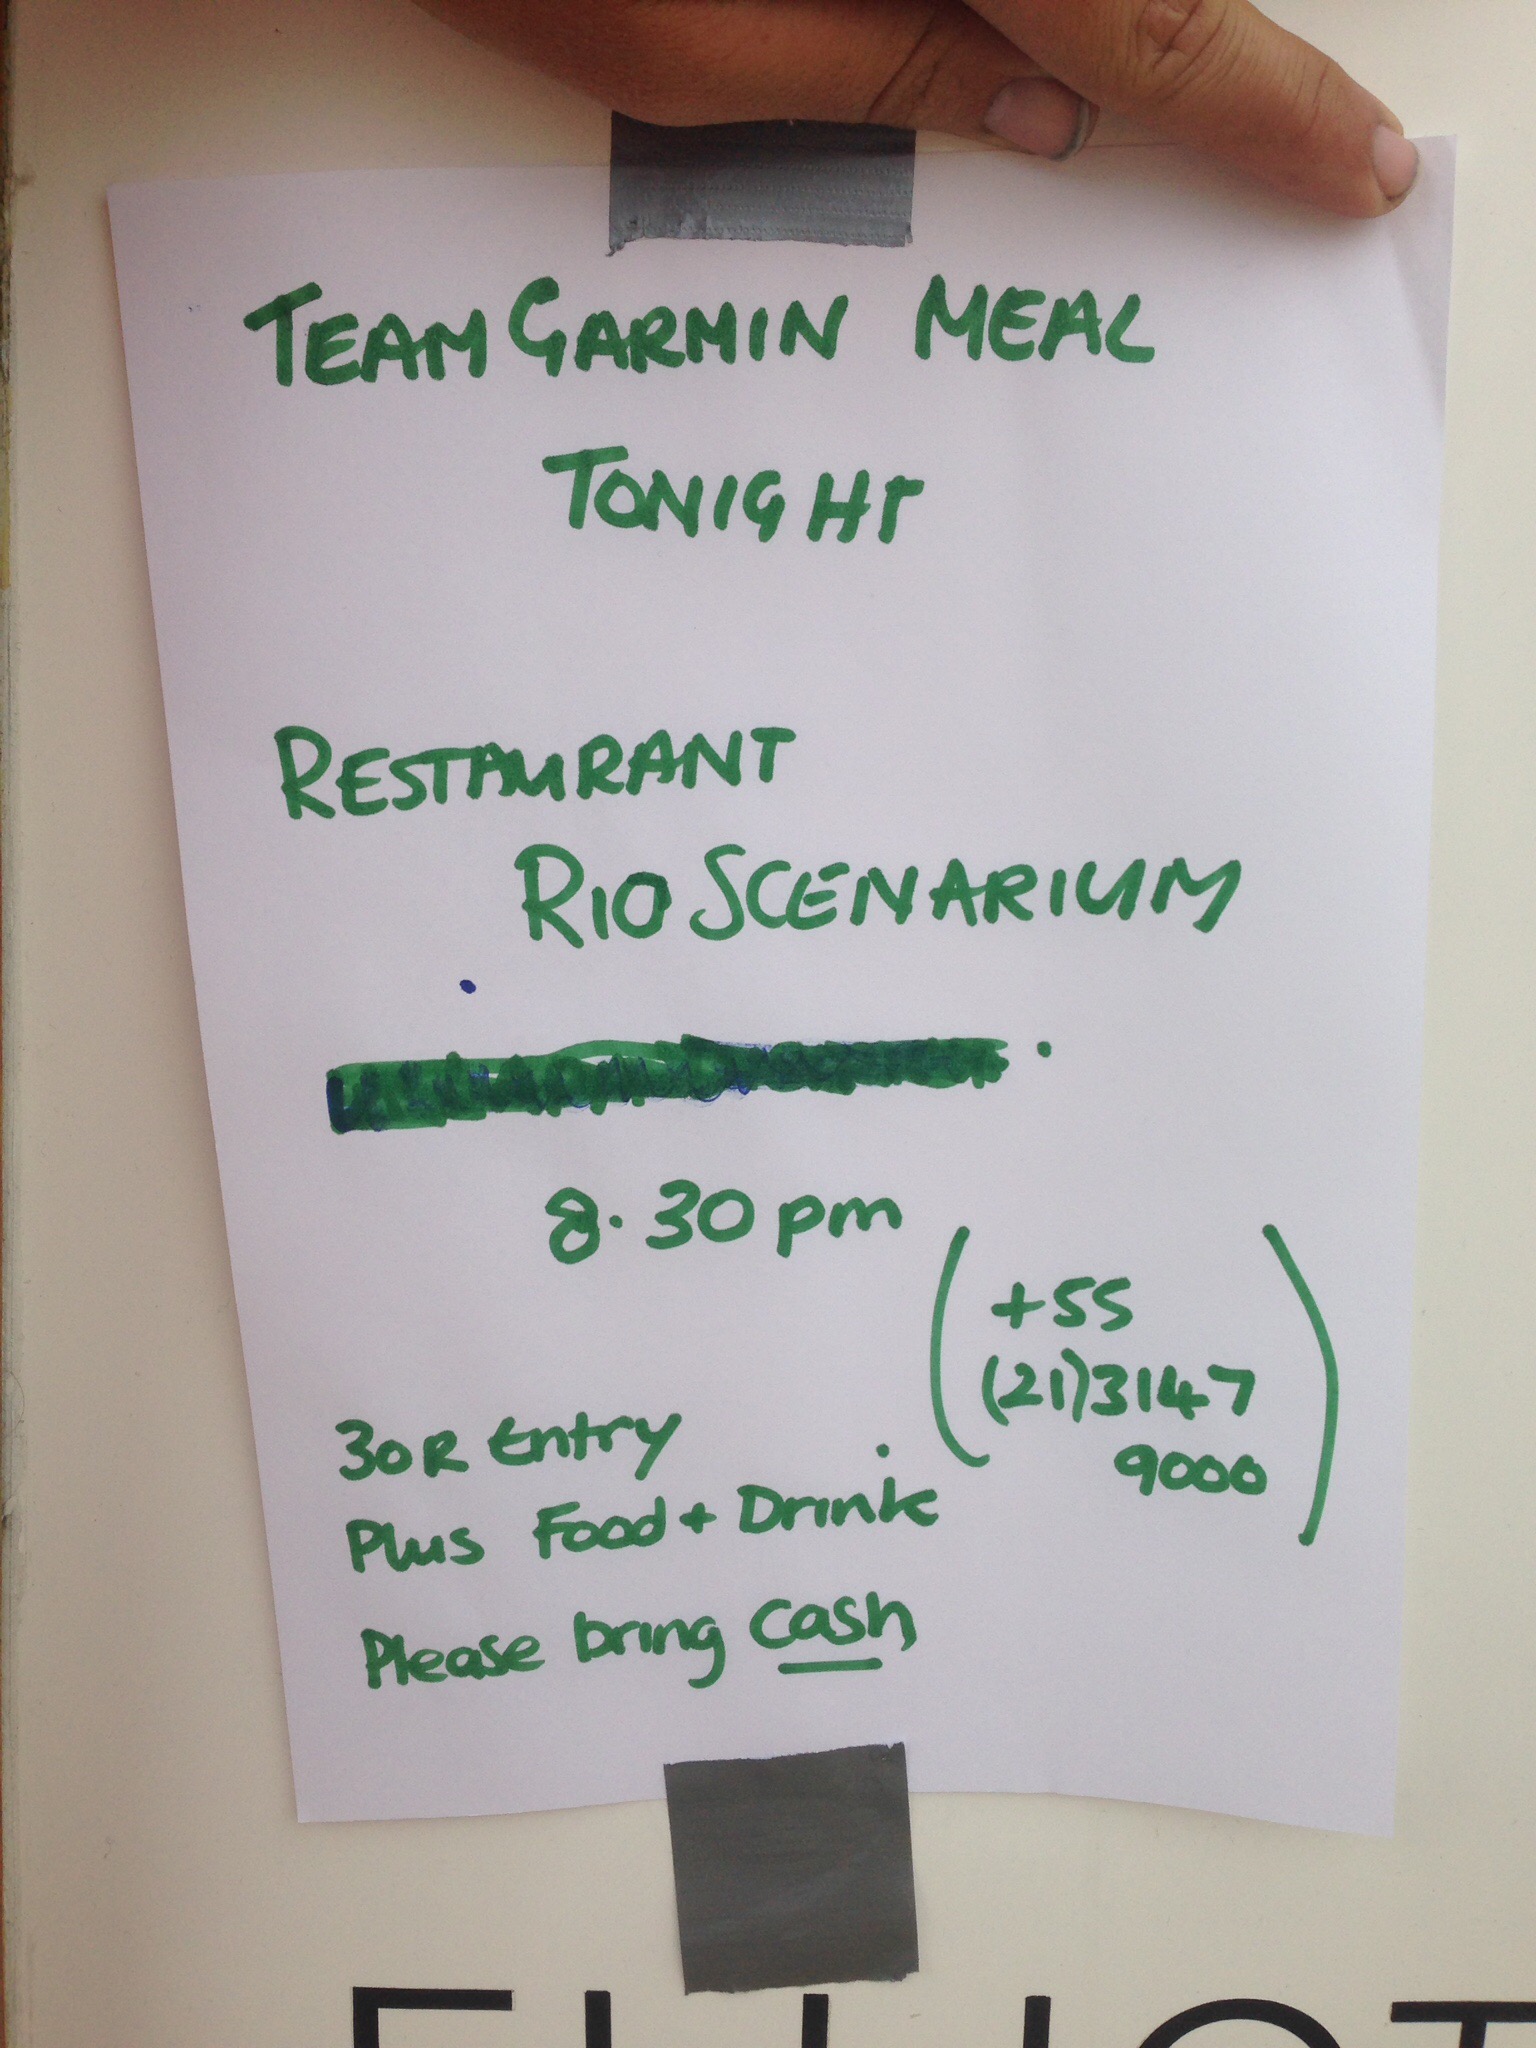 TEAM GARMIN MEAL
TONIGHT
RESTAURANT
RIO SCENARIUM
8.30pm
(+55
(21)3147
9000)
30R Entry
Plus Food + Drink
Please bring cash